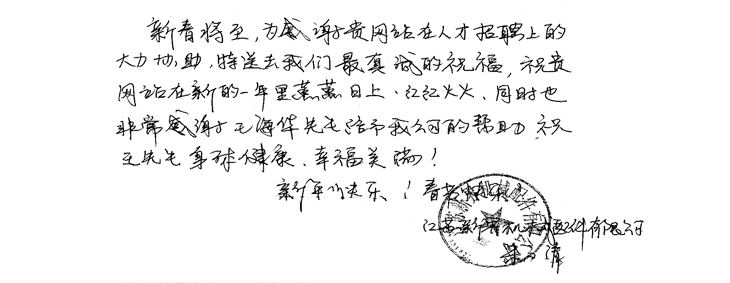 新春将至,为感谢贵网站在人才招聘上的
大力协助,特送去我们最真诚的祝福,祝贵
网站在新的一年里蒸蒸日上、红红火火、同时也
非常感谢王海华先生给予我公司的帮助,祝
王先生身体健康、幸福美满!
新年快乐!春节快乐
江苏新 机械配件有限公司